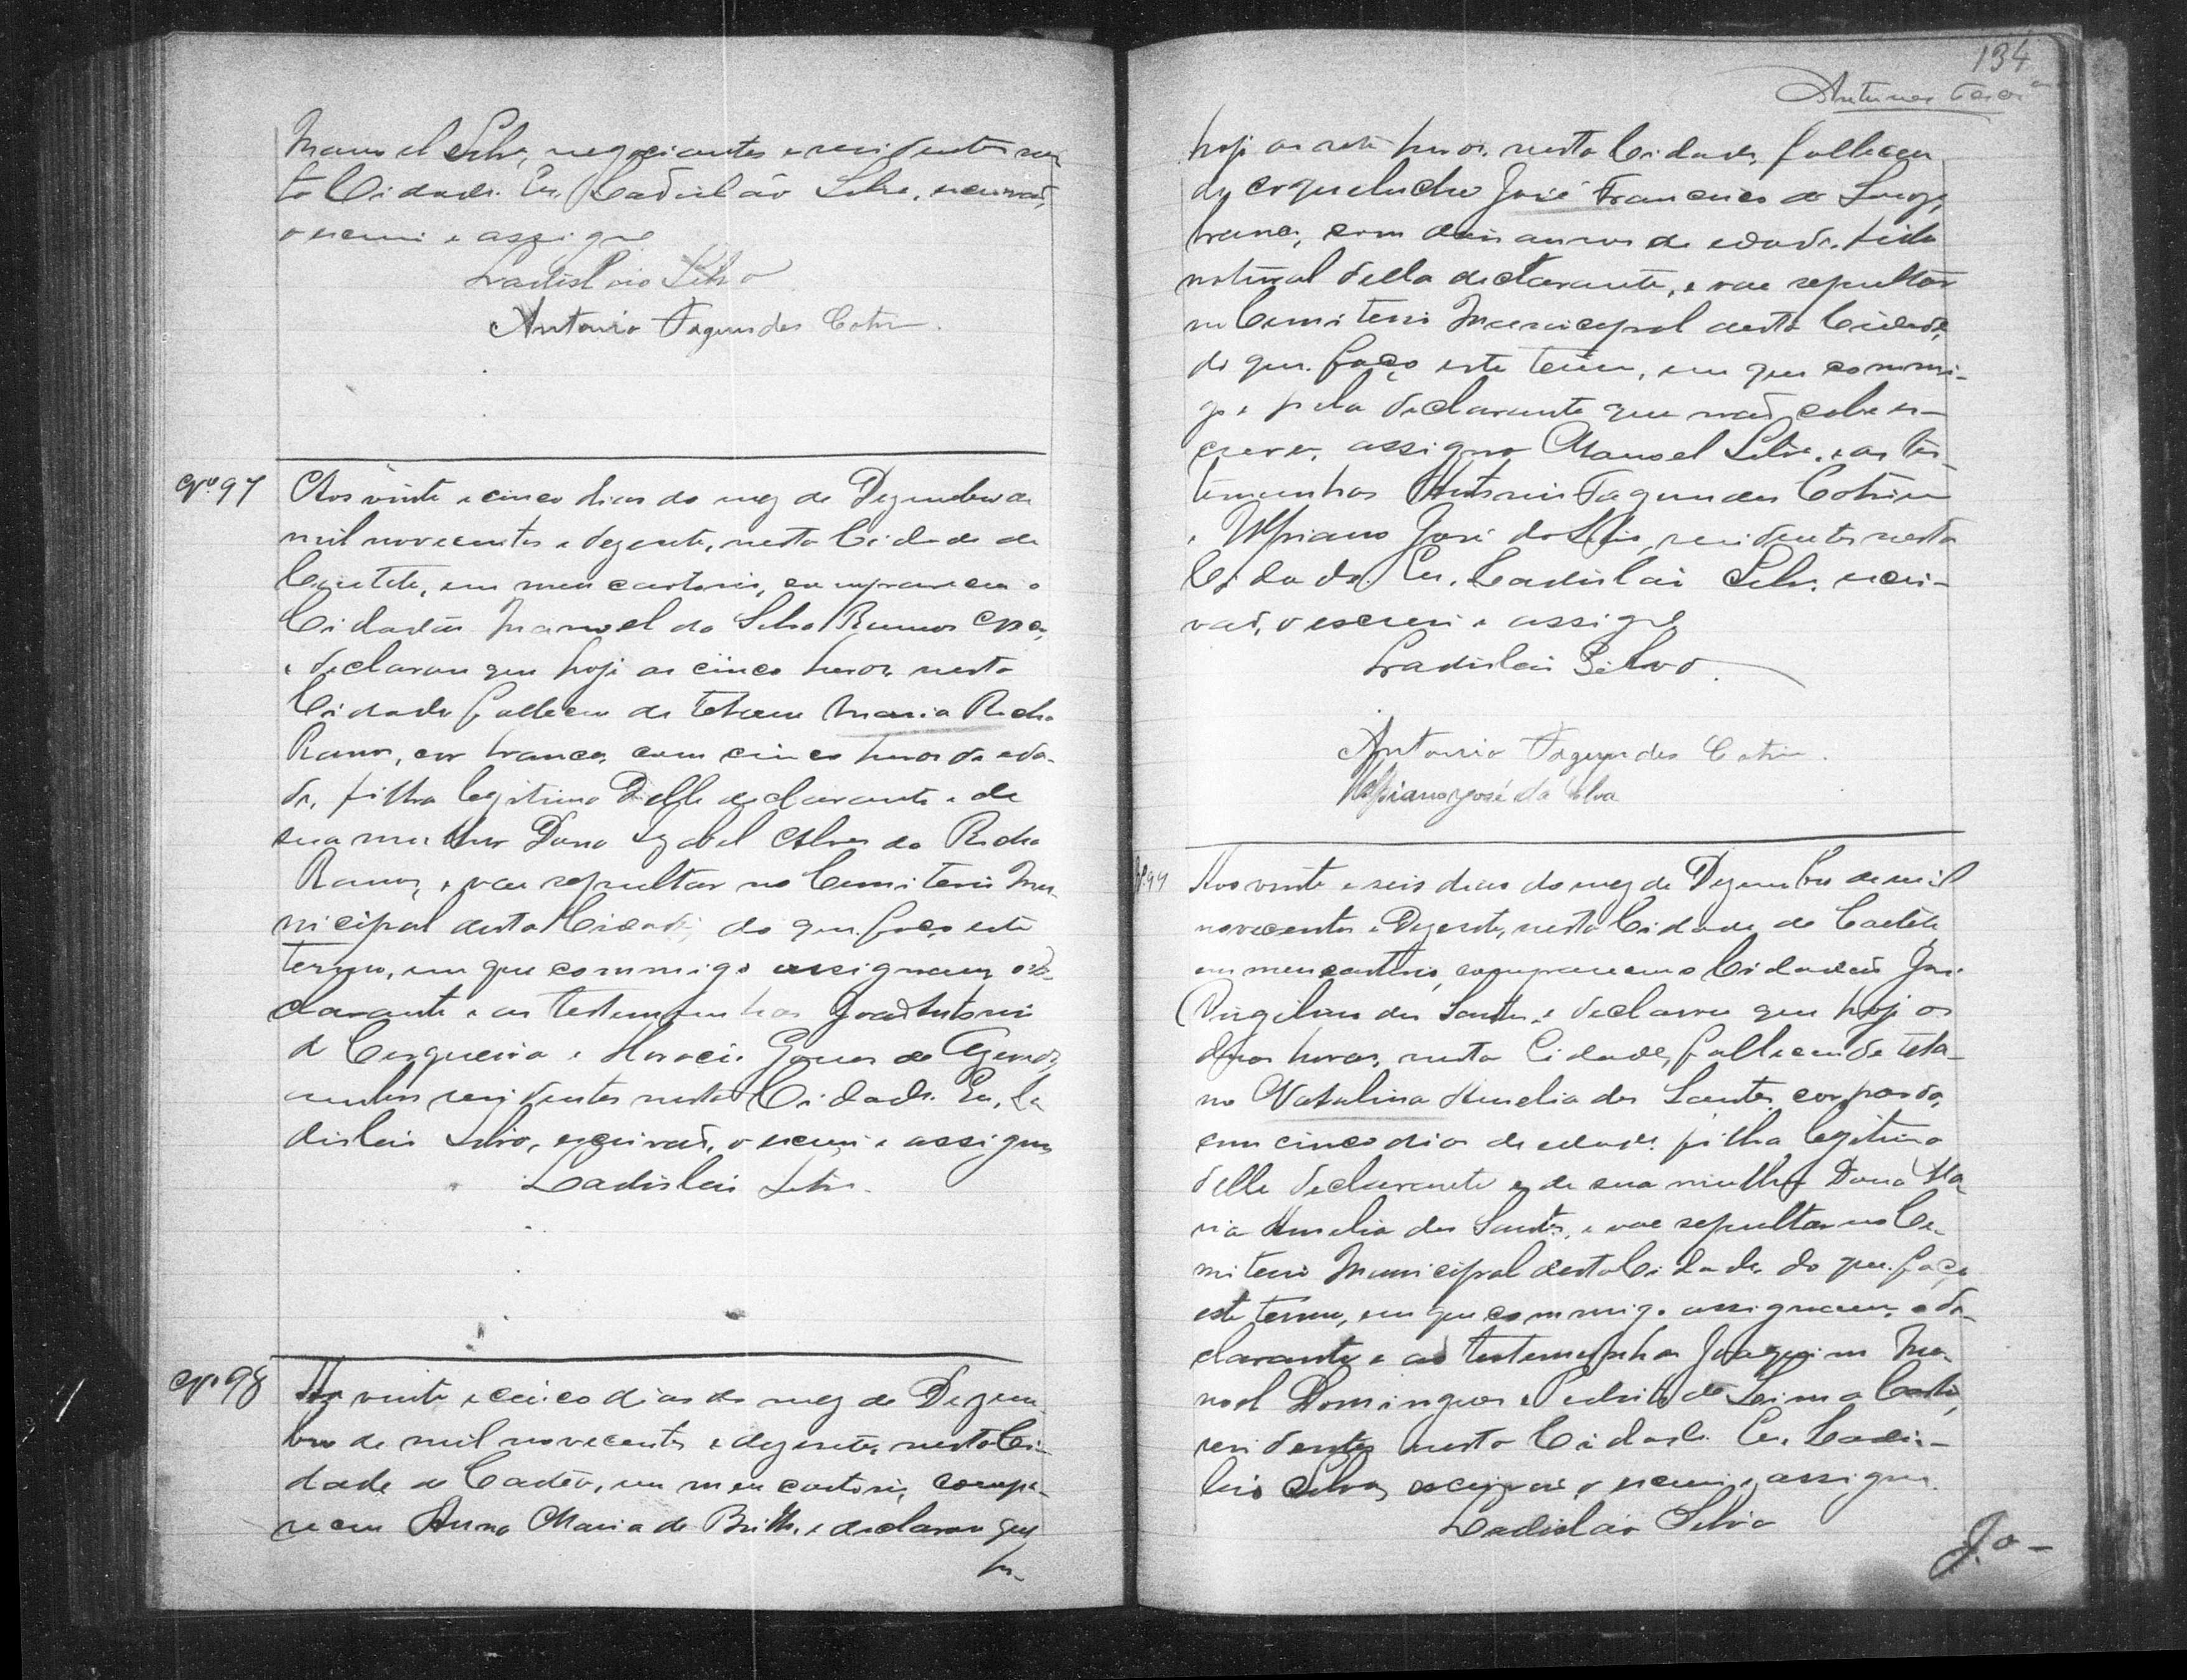 Manoel Silva, negociantes e residentes nes
ta Cidade. Eu, Ladisláo Silva, escrivaõ,
o escrevi e assigno
Ladislao Silva
Antonio Fagundes Cotrim.
Nº 97
Aos vinte e cinco dias do mez de Dezembro de
mil novecentos e dezesete, nesta Cidade de
Caetete, em meu cartorio, compareceu o
Cidadão Manoel da Silva Ramos
e declarou que hoje as cinco horas nesta
Cidade falleceu de tetano Maria Rocha
Ramos, cor branca, com cinco horas de eda-
de, filha legitima delle declarante e de
sua mulher Dona Izabel Alves da Rocha
Ramos, e vae sepultar no Cemiterio Mu-
nicipal desta Cidade, do que faço este
termo, em que commigo assignam o de-
clarante e as testemunhas João Antonio
de Cerqueira e Horacio Gomes de Azevedo,
ambos residentes nesta Cidade. Eu, La
dislau Silva, escrivaõ, o escrevi e assigno
Ladislau Silva.
Nº 98
Aos vinte e cinco dias do mez de Dezem-
bro de mil novecentos e dezesete, nesta Ci-
dade de Caeteté, em meu cartorio, compa-
receu Anna Maria de Britto, e declarou que
ho-
134
Antunes
hoje as sete horas, nesta Cidade, falleceu
de coqueluche José Francisco de Souza,
branco, com dois annos de edade, filho
natural della declarante, e vae sepultar
no Cemiterio Municipal desta Cidade,
do que faço este termo, em que commi-
go e pela declarante que naõ sabe es-
crever, assigno Manoel Silva, e as tes-
temunhas Antonio Fagundes Cotrim
e Ulpiano José da Silva, residentes nesta
Cidade. Eu, Ladislau Silva, escri-
vaõ, o escrevi e assigno
Ladislau Silva.
Antonio Fagundes Cotrim.
Ulpiano José da Silva
Nº 99
Aos vinte e seis dias do mez de Dezembro de mil
novecentos e Dezesete, nesta Cidade de Caeteté,
em meu cartorio, compareceu o Cidadaõ José
Virgilino dos Santos, e declarou que hoje as
duas horas, nesta Cidade, falleceu de teta-
no Natalina Amelia dos Santos, cor parda,
com cinco dias de edade, filha legitima
delle declarante e de sua mulher Dona Ma-
ria Amelia dos Santos, e vae sepultar no Ce-
miterio Municipal desta Cidade, do que faço
este termo, em que commigo assignam, o de-
clarante e as testemunhas Joaquim Ma-
noel Domingues e Pedrito de Lima
residentes nesta Cidade. Eu, Ladis-
lau Silva, escrivaõ, o escrevi e assigno.
Ladislao Silva
Jo-